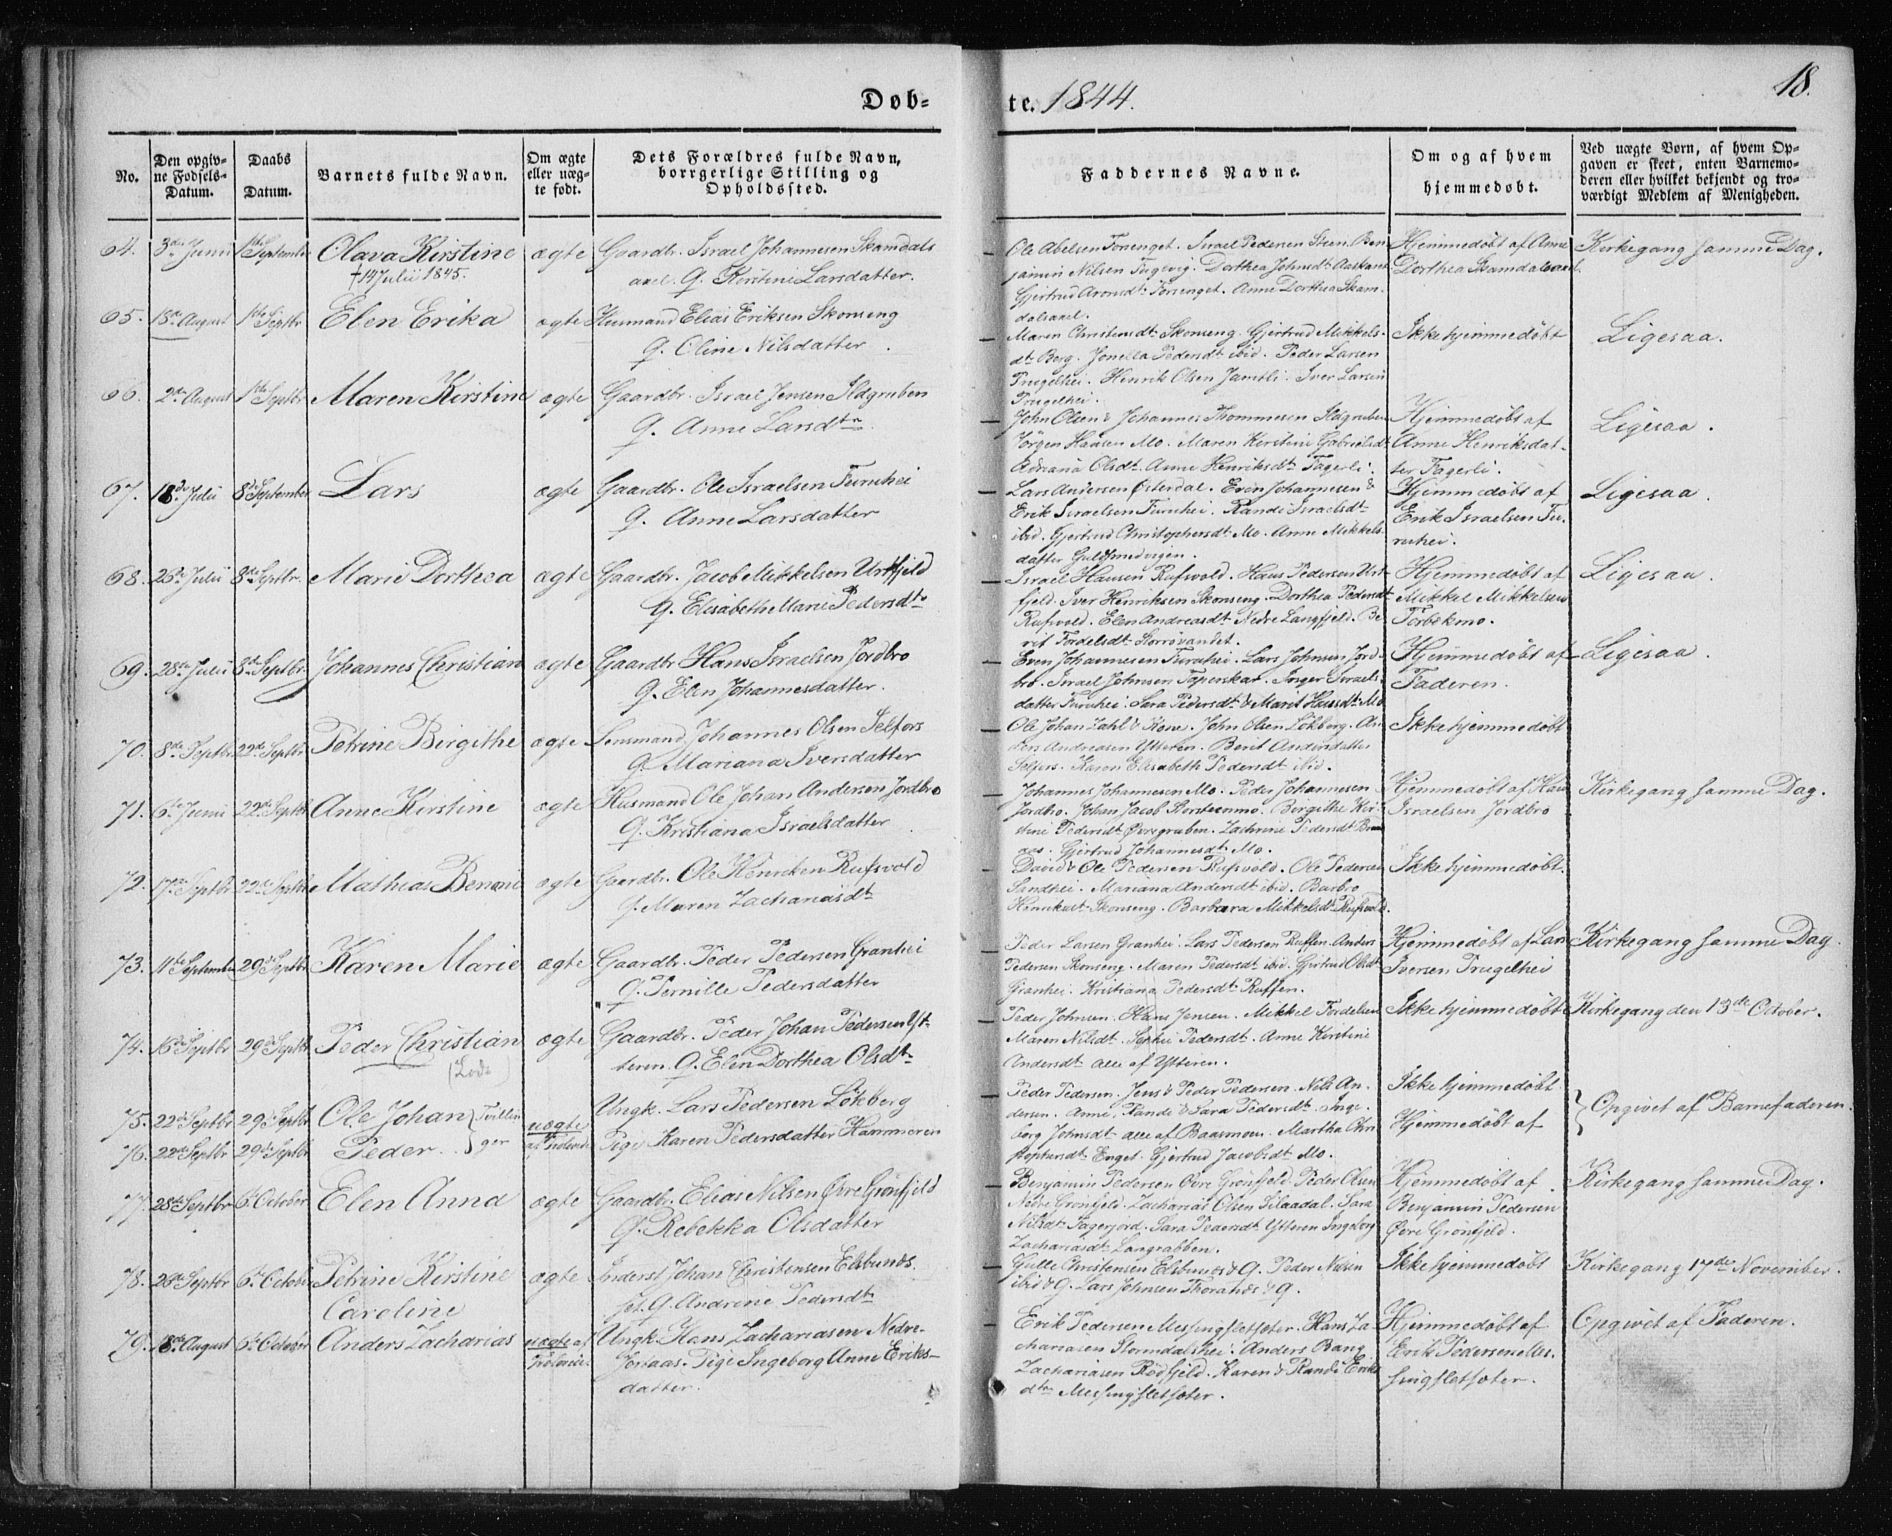 18.
Døb-
te. 1844.
No.
Den opgiv-
ne Fødsels-
Datum.
Daabs
Datum.
Barnets fulde Navn.
Om ægte
eller uæg-
te født.
Dets Forældres fulde Navn,
borrgerlige Stilling og
Opholdssted.
Faddernes Navne.
Om og af hvem
hjemmedøbt.
Ved uægte Børn, af hvem Op-
gaven er skeet, enten Barnemo-
deren eller hvilket bekjendt og tro-
værdigt Medlem af Menigheden.
64. 3de Junii 1ste September Olava Kirstine ægte Gaardbr. Israel Johannesen Skamdals
†14 Julii 1845. axel. Q. Kirstine Larsdatter.
Ole Abelsen Forsenget. Israel Pedersen Steen. Ben
jamin Nilsen Fugevig. Dorthea Johnsdt.
Gjertrud Aronsdt. Forsenget. Anne Dorthea Skam.
dalsaxel.
Hjemmedøbt af Anne
Dorthea Skamdalsaxel
Kirkegang samme Dag.
65. 18de August 1ste Septbr Elen Erika ægte Huusmand Elias Eriksen Skonseng
Q. Oline Nilsdatter.
Maren Christensdt. Skonseng. Gjertrud Mikkels-
dt. Berg. Jonella Pedersdt. ibid. Peder Larsen
Prugelhei. Henrik Olsen Jamtli. Iver Larsen
Prugelhei.
Ikke hjemmedøbt
Ligesaa.
66. 2den August 1ste Septbr Maren Kirstine ægte Gaardbr. Israel Jensen Ildgruben
Q. Anne Larsdtr.
John Olsen & Johannes Thommesen Ildgruben
Jørgen Hansen Mo. Maren Kirstine Gabrielsdt
Adriana Olsdt. Anne Henriksdt. Fagerli.
Hjemmedøbt af
Anne Henriksdat-
ter Fagerli.
Ligesaa.
67. 18de Julii 8de September Lars ægte Gaardbr. Ole Israelsen Furuhei
Q. Anne Larsdatter
Lars Andersen Østerdal. Even Johannesen &
Erik Israelsen Furuhei. Randi Israelsdt.
ibid. Gjertrud Christophersdt. Mo. Anne Mikkels-
datter Guldsmedvigen.
Hjemmedøbt af
Erik Israelsen Fu-
ruhei.
Ligesaa.
68. 26de Julii 8de Septbr. Marie Dorthea ægte Gaardbr. Jacob Mikkelsen Urtfjeld
Q. Elisabeth Marie Pedersdtr
Israel Hansen Rufsvold. Hans Pedersen Urt-
fjeld. Iver Henriksen Skonseng. Dorthea Pedersdt
Rufsvold. Elen Andreasdt. Nedre Langfjeld. Be-
rit Fordelsdt. Storrøvandet.
Hjemmedøbt af
Mikkel Mikkelsen
Forbekmo.
Ligesaa.
69. 28de Julii 8de Septbr. Johannes Christian ægte Gaardbr. Hans Israelsen Jordbro
Q. Elen Johannesdatter.
Even Johannesen Furuhei. Lars Johnsen Jord-
bro. Israel Johnsen Toperskar. Inger Israels-
datter Furuhei. Sara Pedersdt. & Marit Hansdt. Mo
Hjemmedøbt af
Faderen.
Ligesaa.
70. 8de Septbr 22de Septbr Petrine Birgithe ægte Lensmand Johannes Olsen Selfors
Q. Mariana Iversdatter
Ole Johan Zahl & Kone. John Olsen Løkberg. An-
ders Andreasen Ytteren. Berit Andersdatter
Selfors. Karen Elisabeth Pedersdt. ibid.
Ikke hjemmedøbt
71. 6te Junii 22de Septbr Anne Kirstine ægte Husmand Ole Johan Andersen Jordbro
Q. Kristiana Israelsdatter
Johannes Johannesen Mo. Peder Johannesen
Jordbro. Johan Jacob Horstesmo. Birgithe Kir-
stine Pedersdt. Øvregruben. Zachrine Pedersdt.
Gjertrud Johannesdt. Mo.
Hjemmedøbt af Hans
Israelsen Jordbro
Kirkegang samme Dag.
72. 17de Septbr 22de Septbr Mathias Benoni ægte Gaardbr. Ole Henricksen Rufsvold
Q. Maren Zachariasdt.
David & Ole Pedersen Rufsvold. Ole Pedersen
Sandhei. Mariana Andersdt. ibid. Barbro
Skonseng. Barbara Mikkelsdt. Rufsvold.
Ikke hjemmedøbt.
73. 11te September 29de Septbr Karen Marie ægte Gaardbr. Peder Pedersen Granhei
Q. Pernille Pedersdatter
Peder Larsen Granhei. Lars Pedersen Ruffen. Anders
Pedersen Skonseng. Maren Pedersdt. ibid. Gjertrud Olsdt.
Granhei. Kristiana Pedersdt. Ruffen.
Hjemmedøbt af Lars
Iversen Prugelhei
Kirkegang samme Dag.
74. 16de Septbr 29de Septbr Peder Christian ægte Gaardbr. Peder Johan Pedersen Yt-
teren. Q. Elen Dorthea Olsdtr
Peder Johnsen. Hans Jensen. Mikkel Fordelsen
Maren Nilsdt. Sophie Pedersdt. Anne Kirstine
Andersdt. alle af Ytteren.
Ikke hjemmedøbt
Kirkegang den 13de October.
75. 22de Septbr 29de Septbr Ole Johan } Tvillin
76. 22de Septbr 29de Septbr Peder. } ger
uægte
Ungk. Lars Pedersen Løkberg
Pige Karen Pedersdatter Hammeren
Peder Pedersen. Jens & Peder Pedersen. Nils An-
dersen. Anne, Randi & Sara Pedersdt. Inge-
borg Johnsdt. alle af Baasmoen. Martha Chri-
stophersdt. Enget. Gjertrud Jacobsdt. Mo.
Ikke hjemmedøbt
Hjemmedøbt af
} Opgivet af Barnefaderen.
77. 28de Septbr 6te October Elen Anna ægte Gaardbr. Elias Nilsen Øvre Grønfjeld
Q. Rebekka Olsdatter
Benjamin Pedersen Øvre Grønfjeld. Peder Olsen
Nedre Grønfjeld. Zacharias Olsen Plaadal. Sara
Nilsdt. Fagerjord. Sara Pedersdt. Ytteren. Ingeborg
Zachariasdt. Langrabben.
Hjemmedøbt af
Benjamin Pedersen
Øvre Grønfjeld.
Kirkegang samme Dag.
78. 26de Septbr 6te October Petrine Kirstine
Caroline
ægte Inderst Johan Christensen Elsbunds.
Q. Andrine Pedersdt.
Gulle Christensen Elsbunds & Q. Peder Nilsen
ibid & Q. Lars Johnsen Thoranæs & Q.
Ikke hjemmedøbt
Kirkegang 17de November.
79. 18de August 6te October Anders Zacharias uægte af
Ungk. Hans Zachariasen Nedre-
foraas. Pige Ingeborg Anne Eriks-
datter.
Erik Pedersen Messingsletsæter. Hans Za-
chariasen Stormdalshei. Anders Bang
Zachariasen Rødfjeld. Karen & Randi Eriks
dtr. Messingsletsæter.
Hjemmedøbt af
Erik Pedersen Mes-
singsletsæter.
Opgivet af Faderen.